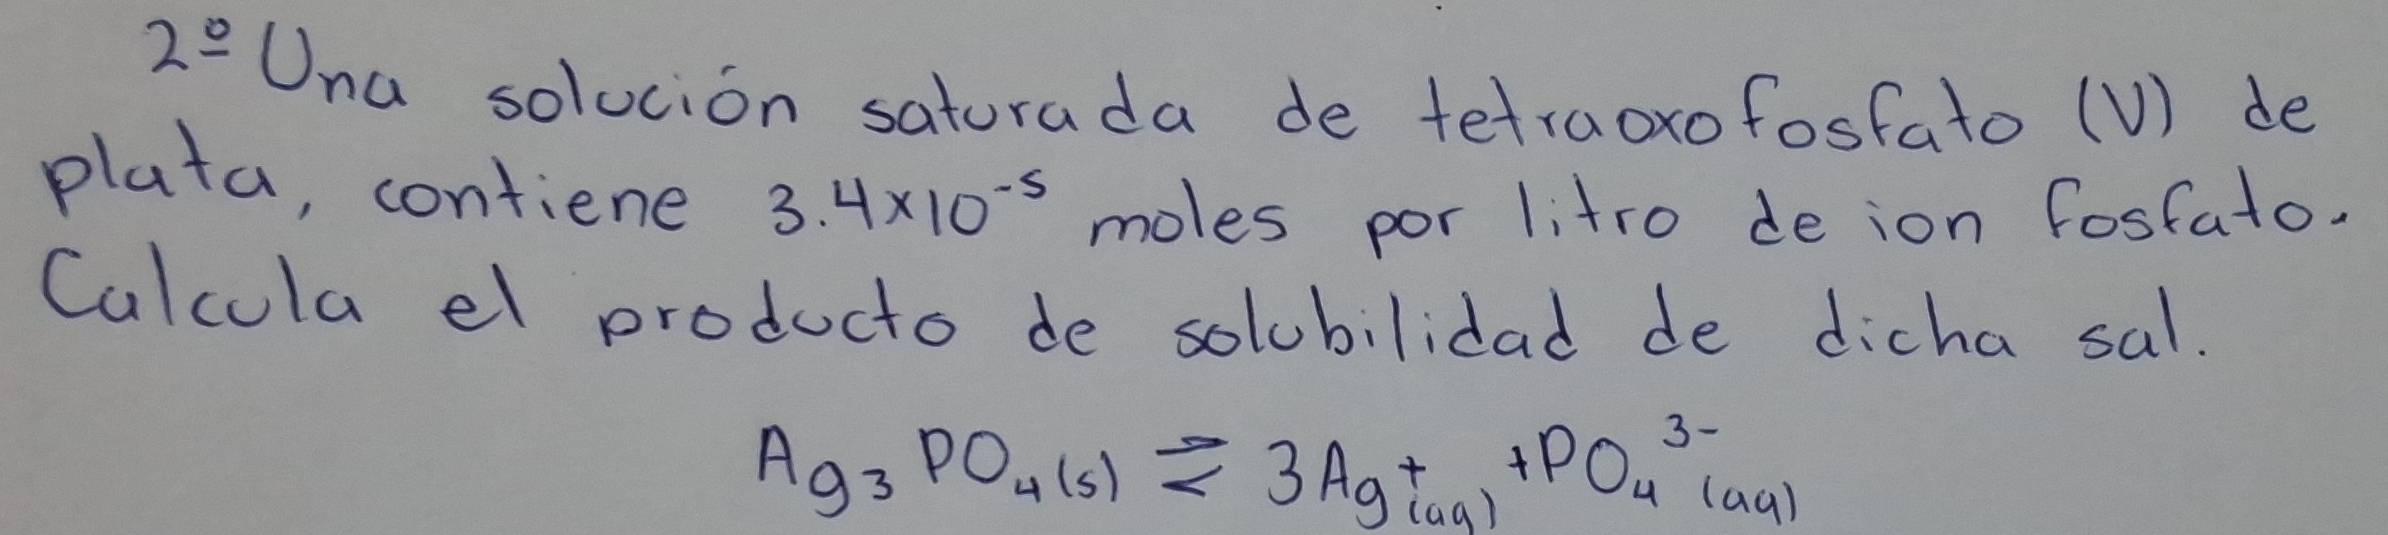 2º Una solución saturada de tetraoxofosfato (V) de
plata, contiene 3.4x10⁻⁵ moles por litro de ion fosfato.
Calcula el producto de solubilidad de dicha sal.
Ag₃PO₄(s) ⇄ 3Ag⁺(aq) + PO₄³⁻(aq)